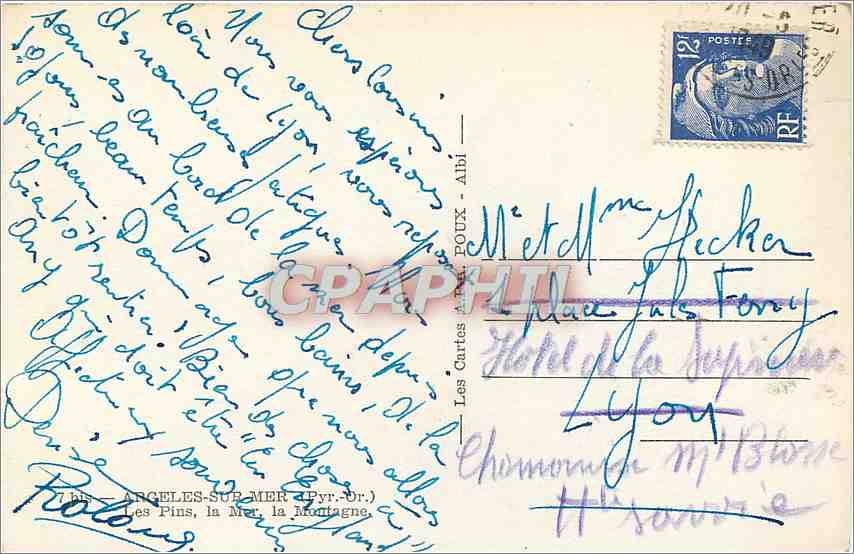 Chers Cousins
Nous vous espérons
loin de Lyon, vous reposant
des nombreuses fatigues. Nous
sommes au bord de la mer depuis
10 jours, beau temps, bons bains, de la
fraîcheur. Dommage que nous allons
bientôt rentrer. Bien des choses à
Any qui doit être
Affectueux souvenirs
Denise
Roland
7 bis — ARGELES-SUR-MER (Pyr.-Or.)
Les Pins, la Mer, la Montagne
— Les Cartes A. POUX - Albi —
CPAPHIL
12F
POSTES
RF
Mr et Mme Hecker
1 place Jules Ferry
Hôtel de la
Lyon
Mt Blosse
Hte Savoie